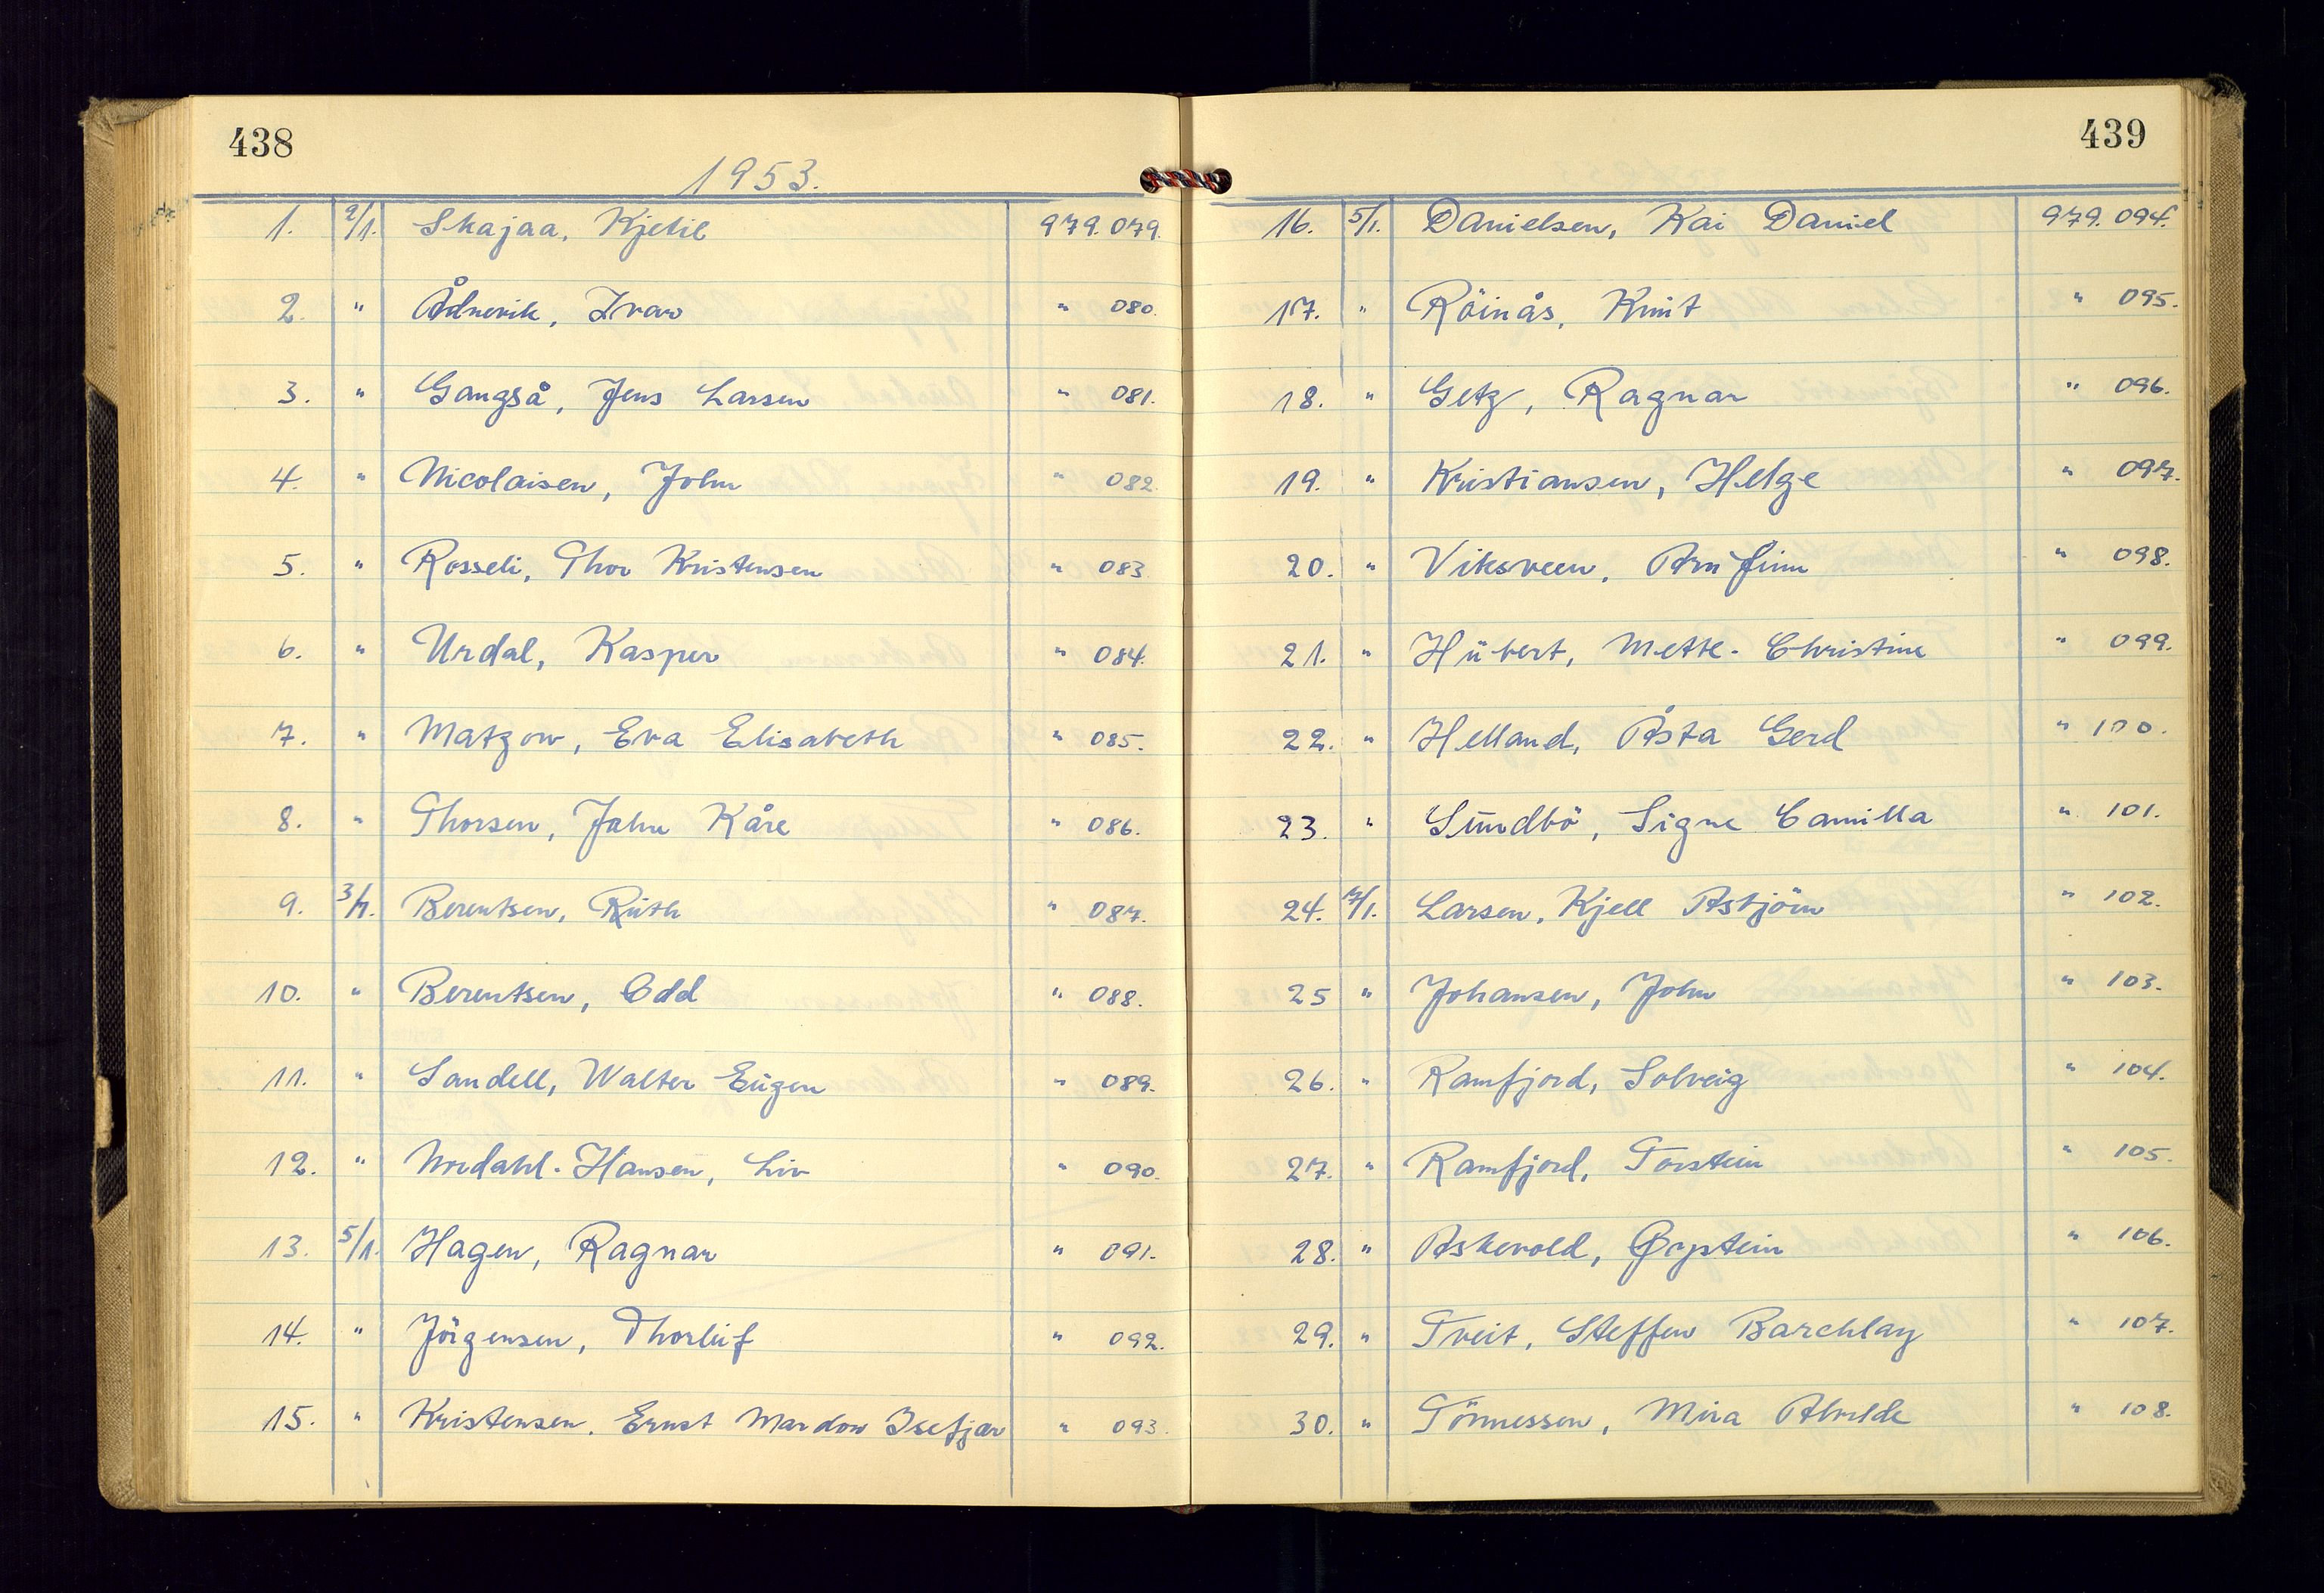 438
1953.
1. 2/1. Skajaa, Kjetil 979.079.
2. " Ådnevik, Ivar " 080.
3. " Gangså, Jens Larsen " 081.
4. " Nicolaisen, John " 082.
5. " Rosseli, Thor Kristensen " 083.
6. " Urdal, Kasper " 084.
7. " Matzow, Eva Elisabeth " 085.
8. " Thorsen, John Kåre " 086.
9. 3/1. Berentsen, Ruth " 087.
10. " Berentsen, Odd " 088.
11. " Sandell, Walter Eugen " 089.
12. " Nordahl-Hansen, Liv " 090.
13. 5/1. Hagen, Ragnar " 091.
14. " Jörgensen, Thorleif " 092.
15. " Kristensen. Ernst Mardow Isefjær " 093.
439
16. 5/1. Danielsen, Kai Daniel 979.094.
17. " Röinås, Knut " 095.
18. " Getz, Ragnar " 096.
19. " Kristiansen, Helge " 097.
20. " Viksveen, Arn finn " 098.
21. " Hübert, Mette-Christine " 099.
22. " Helland, Åsta Gerd " 100.
23. " Sundbö, Signe Camilla " 101.
24. 7/1. Larsen, Kjell Asbjörn " 102.
25 " Johansen, John " 103.
26. " Ramfjord, Solveig " 104.
27. " Ramfjord, Torstein " 105.
28. " Askevold, Øystein " 106.
29. " Tveit, Steffen Barchlay " 107.
30. " Tönnessen, Mira Alvilde " 108.